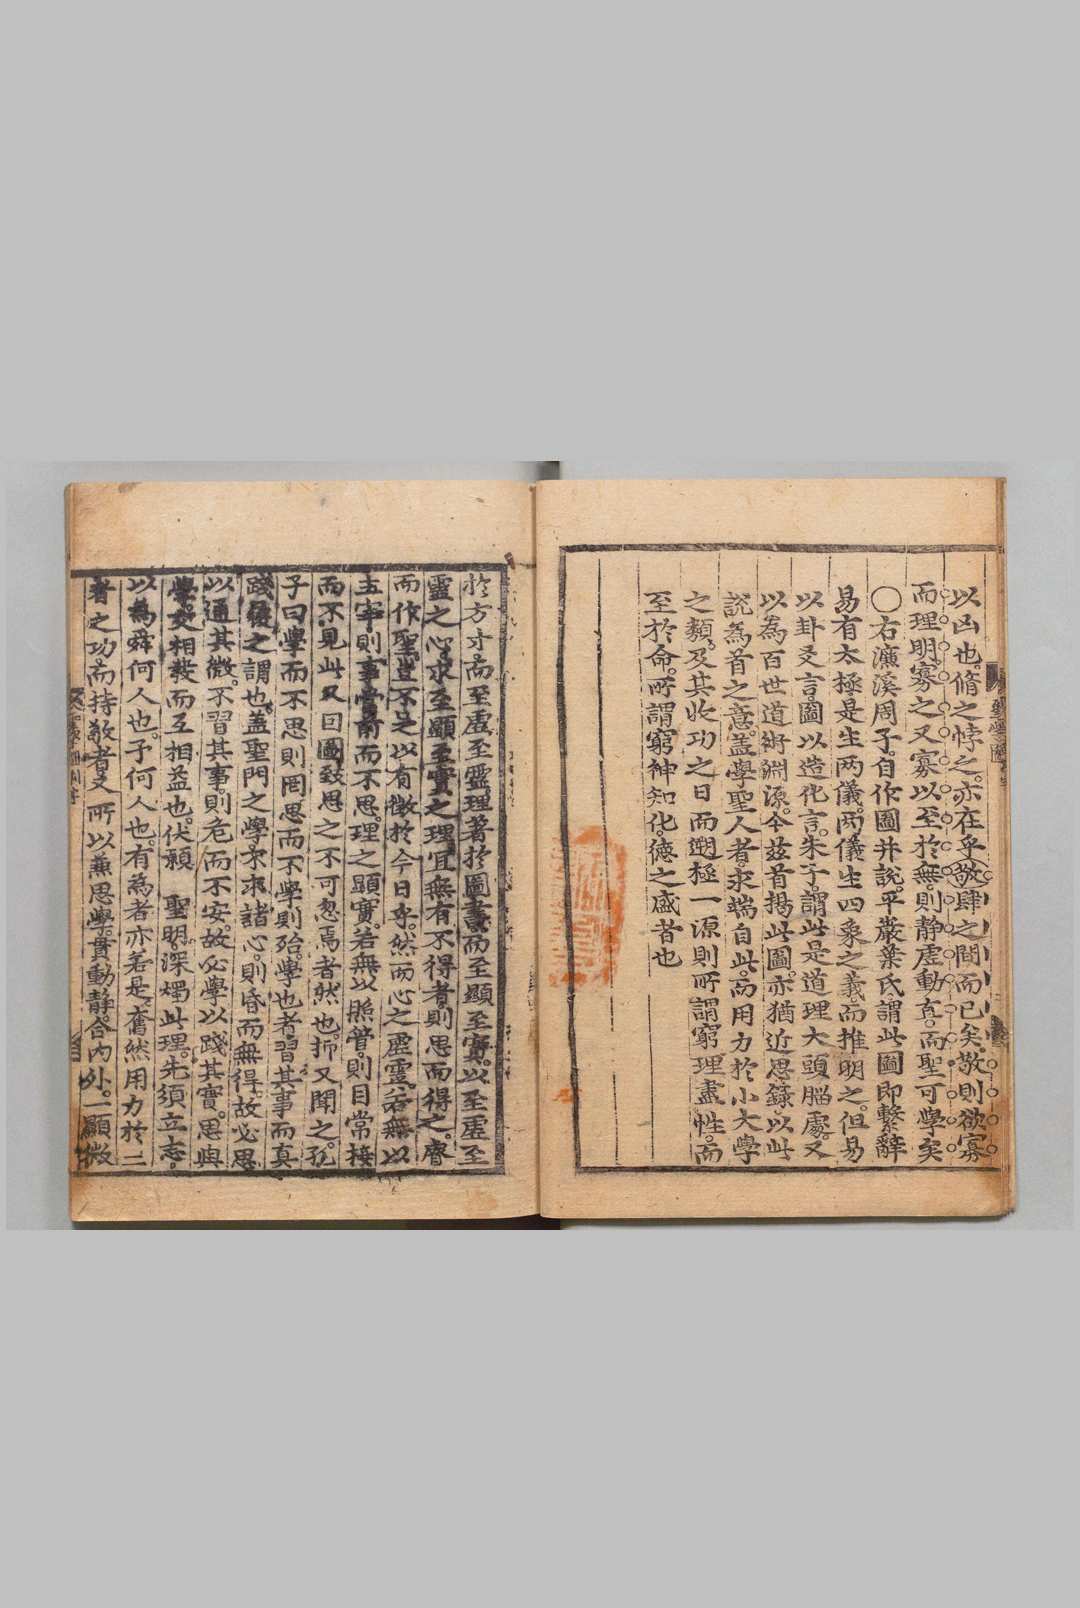 以凶也。脩之悖之。亦在乎敬肆之間而已矣。敬則欲寡
而理明。寡之又寡。以至於無。則静虛動直。而聖可學矣
○右濂溪周子。自作圖并說。平巖葉氏謂此圖即繫辭
易有太極。是生两儀。两儀生四象之義。而推明之。但易
以卦爻言。圖以造化言。朱子謂此是道理大頭腦處。又
以為百世道術淵源。今玆首揭此圖。亦猶近思錄。以此
說為首之意。盖學聖人者。求端自此。而用力於小大學
之類。及其收功之日。而遡極一源。則所謂窮理盡性。而
至於命。所謂窮神知化。德之盛者也
於方寸。而至虛至靈。理著於圖書。而至顯至實。以至虛至
靈之心。求至顯至實之理。宜無有不得者。則思而得之。睿
而作聖。豈不足以有徵於今日乎。然而心之虛靈。若無以
主宰。則事當前而不思。理之顯實。若無以照管。則目常接
而不見。此又因圖致思之不可忽焉者然也。抑又聞之。孔
子曰。學而不思則罔。思而不學則殆。學也者。習其事而真
踐履之謂也。盖聖門之學。不求諸心。則昏而無得。故必思
以通其微。不習其事。則危而不安。故必學以踐其實。思與
學。交相發而互相益也。伏願　聖明。深燭此理。先須立志。
以為舜何人也。予何人也。有為者亦若是。奮然用力於二
者之功。而持敬者。又所以兼思學。貫動静。合內外。一顯微